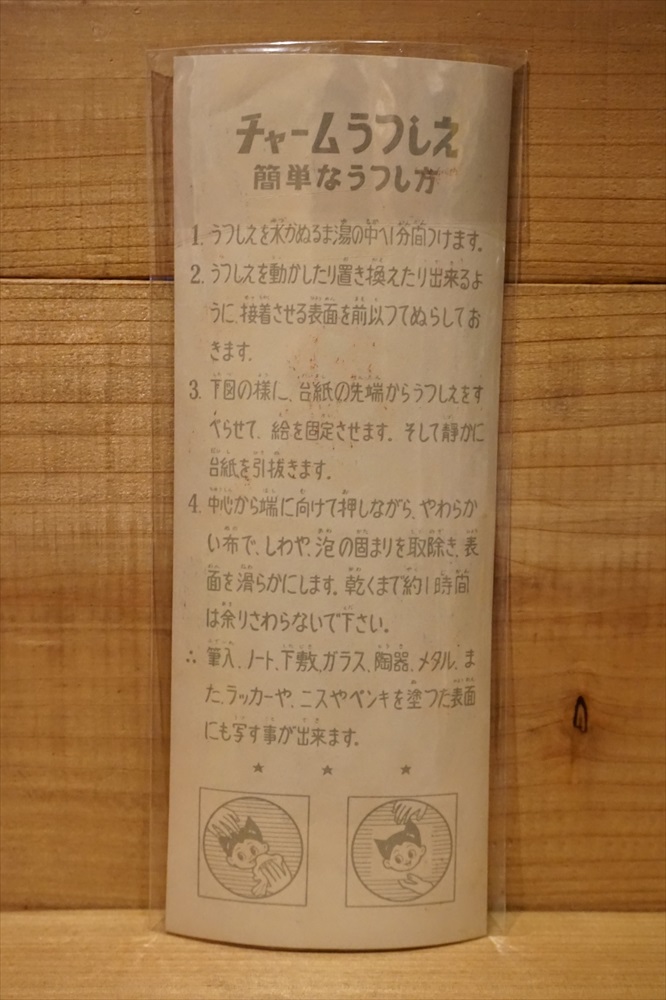 チャームうつしえ
簡単なうつし方
1. うつしえを水かぬるま湯の中へ1分間つけます。
2. うつしえを動かしたり置き換えたり出来るよ
うに、接着させる表面を前以つてぬらしてお
きます。
3. 下図の様に、台紙の先端からうつしえをす
べらせて、絵を固定させます。そして静かに
台紙を引抜きます。
4. 中心から端に向けて押しながら、やわらか
い布で、しわや、泡の固まりを取除き、表
面を滑らかにします。乾くまで約1時間
は余りさわらないで下さい。
∴ 筆入、ノート、下敷、ガラス、陶器、メタル、ま
た、ラッカーや、ニスやペンキを塗つた表面
にも写す事が出来ます。
★ ★ ★